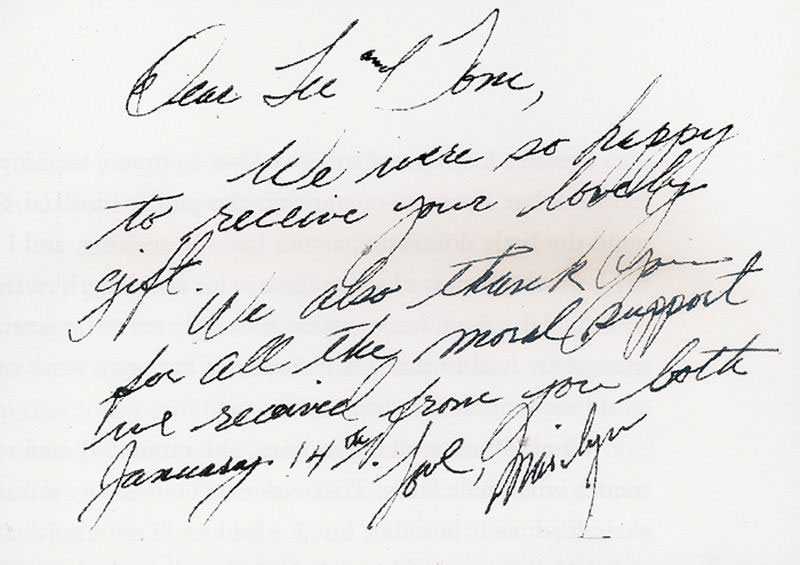 Dear Lee and Tom,
We were so happy
to receive your lovely
gift. We also thank you
for all the moral support
we received from you both
January 14th. Love, Marilyn